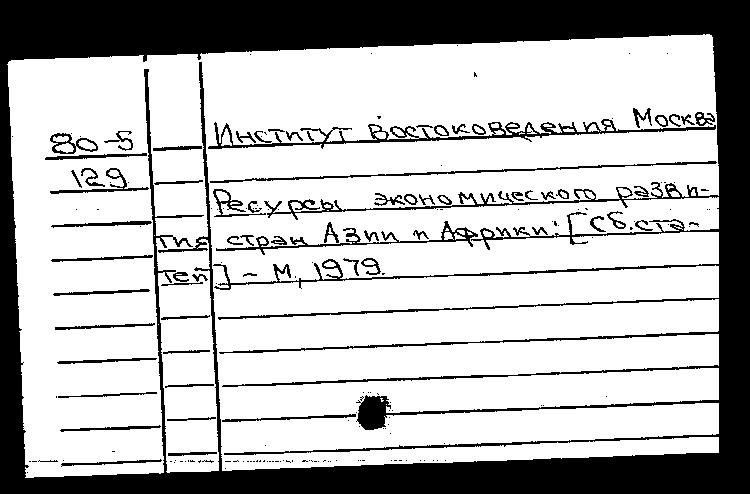 80-5 Институт Востоковедения Москва
129
Ресурсы экономического разви-
тия стран Азии и Африки: [Сб. ста-
тей] - М, 1979.